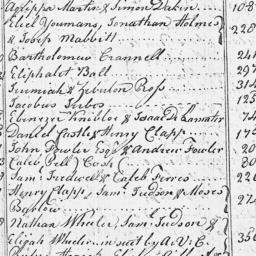 Agrippa Martin & Simon Dakin 108
Eliel Youmans, Jonathan Holmes
& Tobias Mabbitt 228
Bartholomew Crannell 24
Eliphalet Ball 29
Jeremiah & Zebulon Ross 314
Jacobus Terbos 125
Ebenezer Knibloe & Isaac De Lamater 74
Daniel Castle & Henry Clapp 17
John Fowler Esqr & Andrew Fowler 20
Caleb Pell) Cash
Saml Ferdwell & Caleb Ferres 22
Henry Clapp, Saml Judson & Moses
Barlow 274
Nathan Wheeler, Saml Judson &
Elijah Wheeler in suit by A. V. C. 350